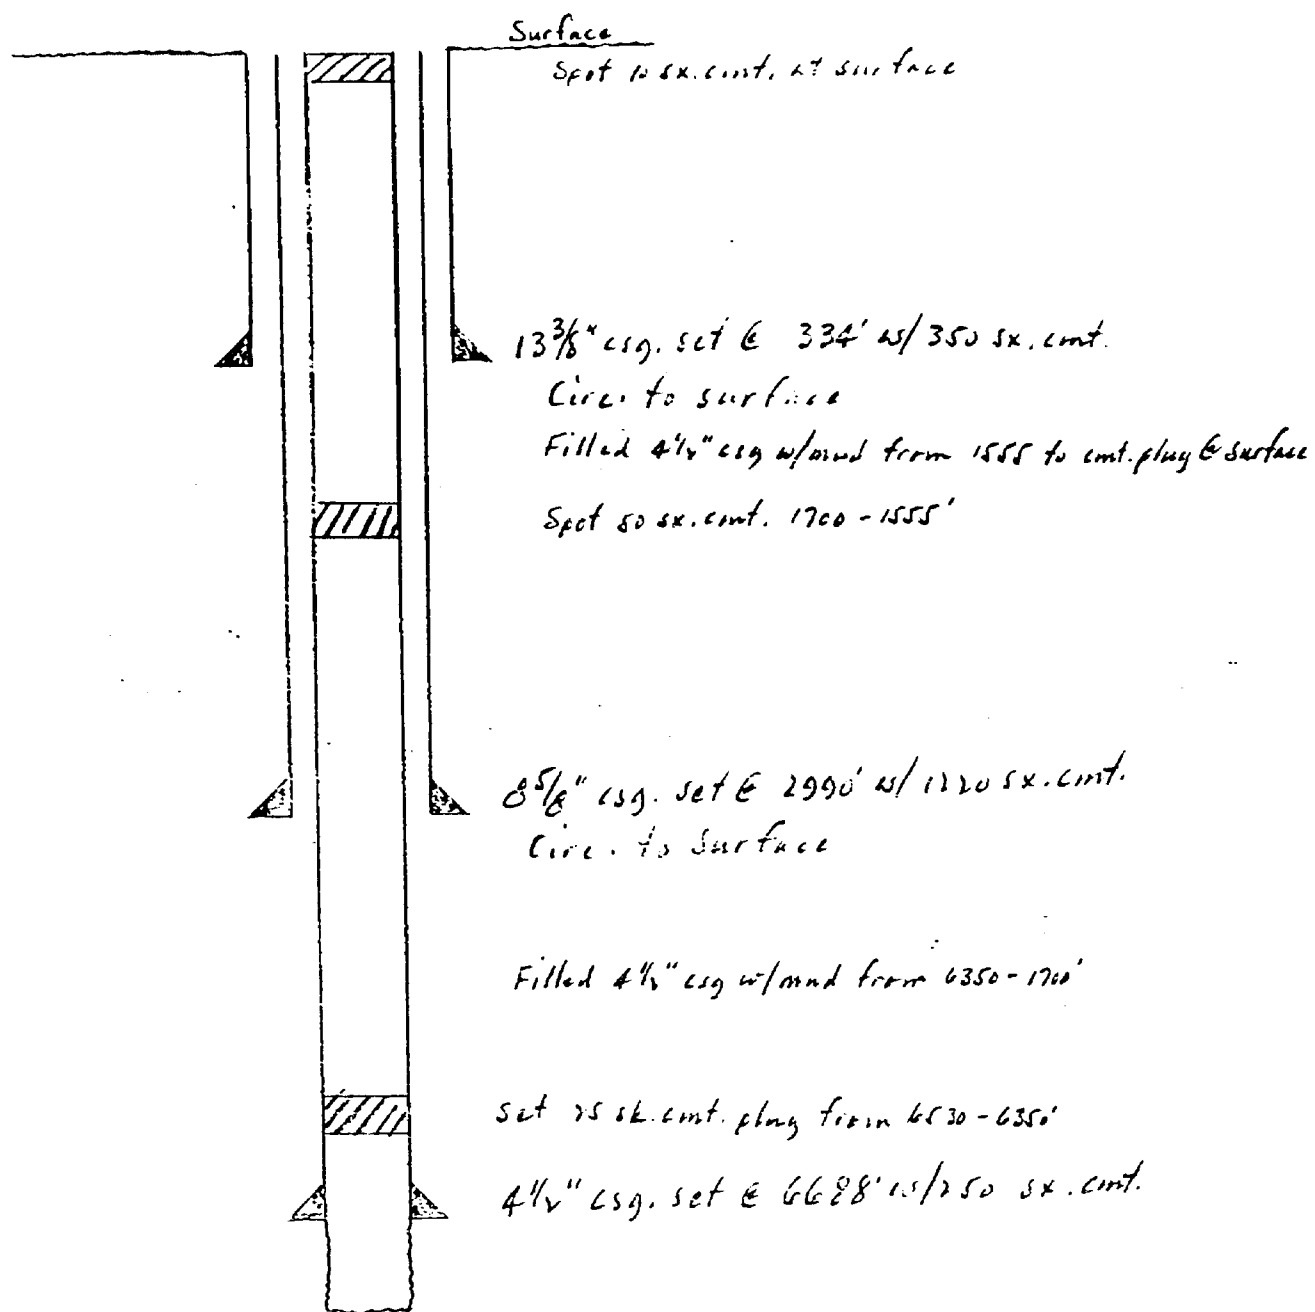 Surface
Spot 10 sx. cmt. at surface
13 3/8" csg. set @ 334' w/ 350 sx. cmt.
Circ. to surface
Filled 4 1/2" csg w/mud from 1555 to cmt. plug @ surface
Spot 50 sx. cmt. 1700 - 1555'
8 5/8" csg. set @ 2990' w/ 1220 sx. cmt.
Circ. to surface
Filled 4 1/2" csg w/mud from 6350 - 1700'
Set 25 sk. cmt. plug from 6530 - 6350'
4 1/2" csg. set @ 6688' w/250 sx. cmt.